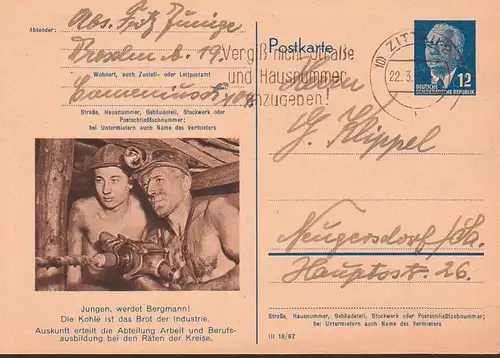 Absender: Abs. Fritz
Dresden A. 19.
Wohnort, auch Zustell- oder Leitpostamt
Straße, Hausnummer, Gebäudeteil, Stockwerk oder
Postschließfachnummer;
bei Untermietern auch Name des Vermieters
Postkarte
Vergiß nicht Straße
und Hausnummer
anzugeben!
(10) ZITT
22.3.
12
DEUTSCHE
DEMOKRATISCHE REPUBLIK
G. Klippel
Neugersdorf
Hauptstr. 26.
Straße, Hausnummer, Gebäudeteil, Stockwerk oder Postschließfachnummer;
bei Untermietern auch Name des Vermieters
III 18/97
Jungen, werdet Bergmann!
Die Kohle ist das Brot der Industrie.
Auskunft erteilt die Abteilung Arbeit und Berufs-
ausbildung bei den Räten der Kreise.